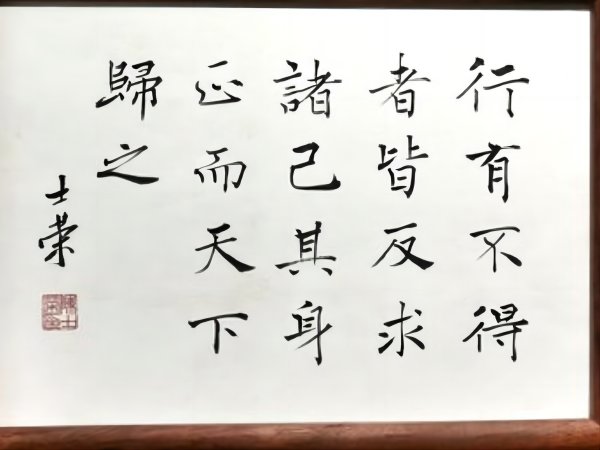 行有不得
者皆反求
諸己其身
正而天下
歸之
士荣